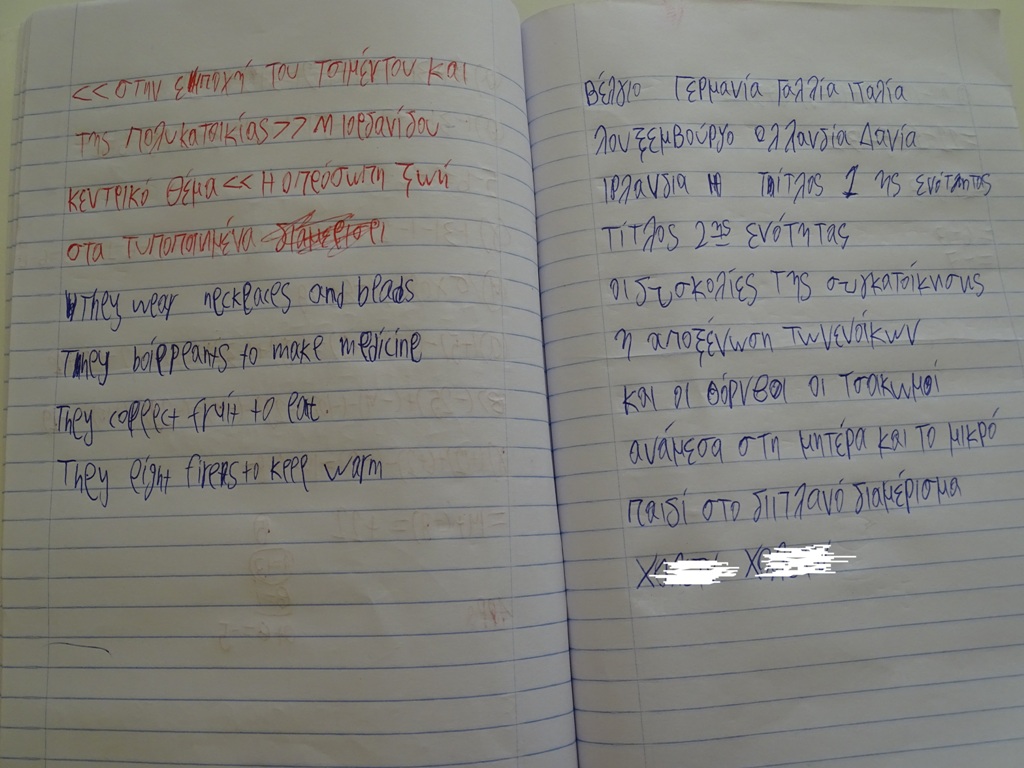 <<στην εποχή του τσιμέντου και
της πολυκατοικίας>> Μ Ιορδανίδου
κεντρικό θέμα << Η απρόσωπη ζωή
στα τυποποιημένα
They wear neckpaces and beads
They boieppants to make medicine
They coppect fruit to eat.
They eight firers to keep warm
Βέλγιο Γερμανία Γαλλία Ιταλία
Λουξεμβούργο Ολλανδία Δανία
Ιρλανδία Η τίτλος 1 ης ενότητας
τίτλος 2ης ενότητας
οι δυσκολίες της συγκατοίκησης
η αποξένωση των ενοίκων
και οι θόρυβοι οι τσακωμοί
ανάμεσα στη μητέρα και το μικρό
παιδί στο διπλανό διαμέρισμα